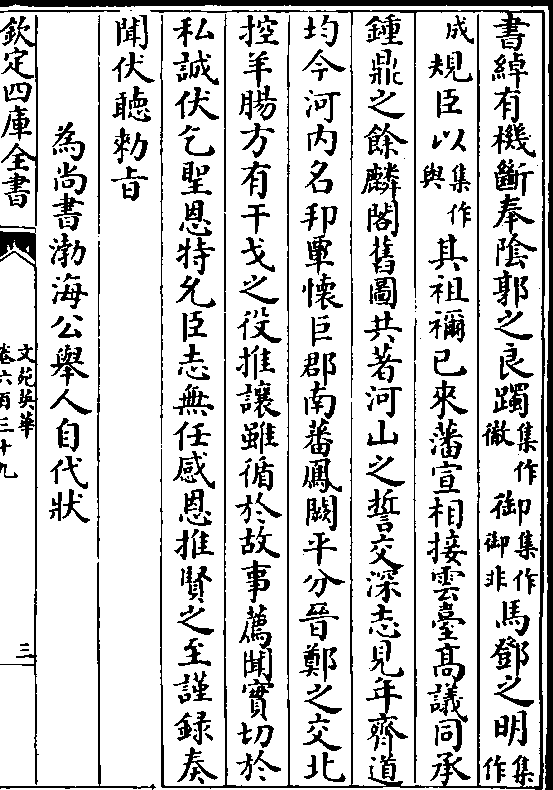 書綽有機斷奉陰郭之良躅集作徹御集作御非馬鄧之明集作
成規臣以集作與其祖禰已來藩宣相接雲臺高議同承
鍾鼎之餘麟閣舊圖共著河山之誓交深志見年齊道
均今河内名邦覃懷巨郡南蕃鳳闕平分晉鄭之交北
控羊腸方有干戈之役推讓雖循於故事薦聞實切於
私誠伏乞聖恩特允臣志無任感恩推賢之至謹録奏
聞伏聽勅旨
為尚書渤海公舉人自代狀
欽定四庫全書
文苑英華
卷六百三十九
三